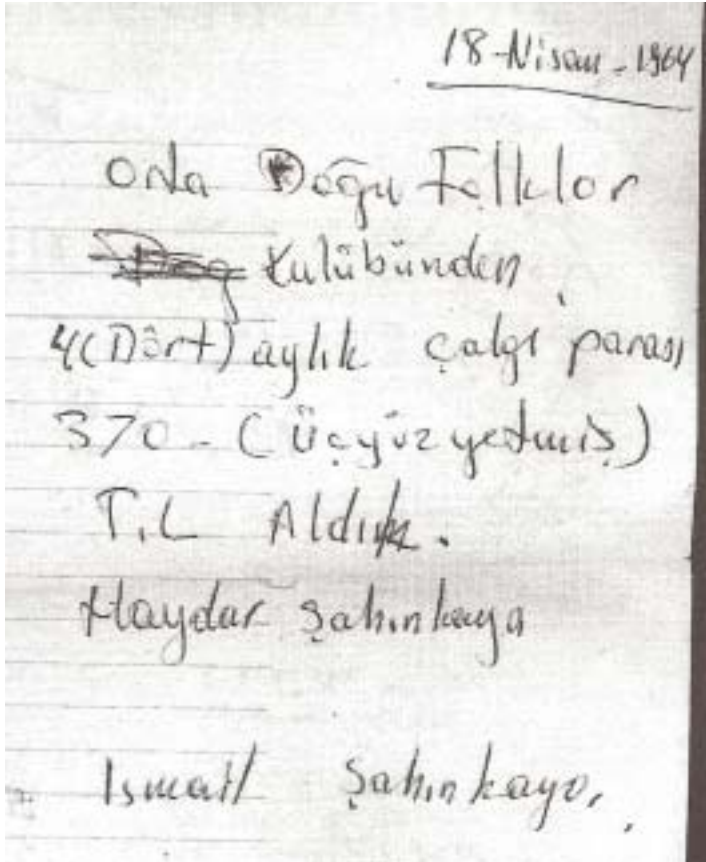 18-Nisan-1964
Orta Doğu Folklor
Kulübünden
4(Dört) aylık çalgı parası
370-(Üçyüzyetmiş)
T.L Aldık.
Haydar Şahinkaya
İsmail Şahinkaya